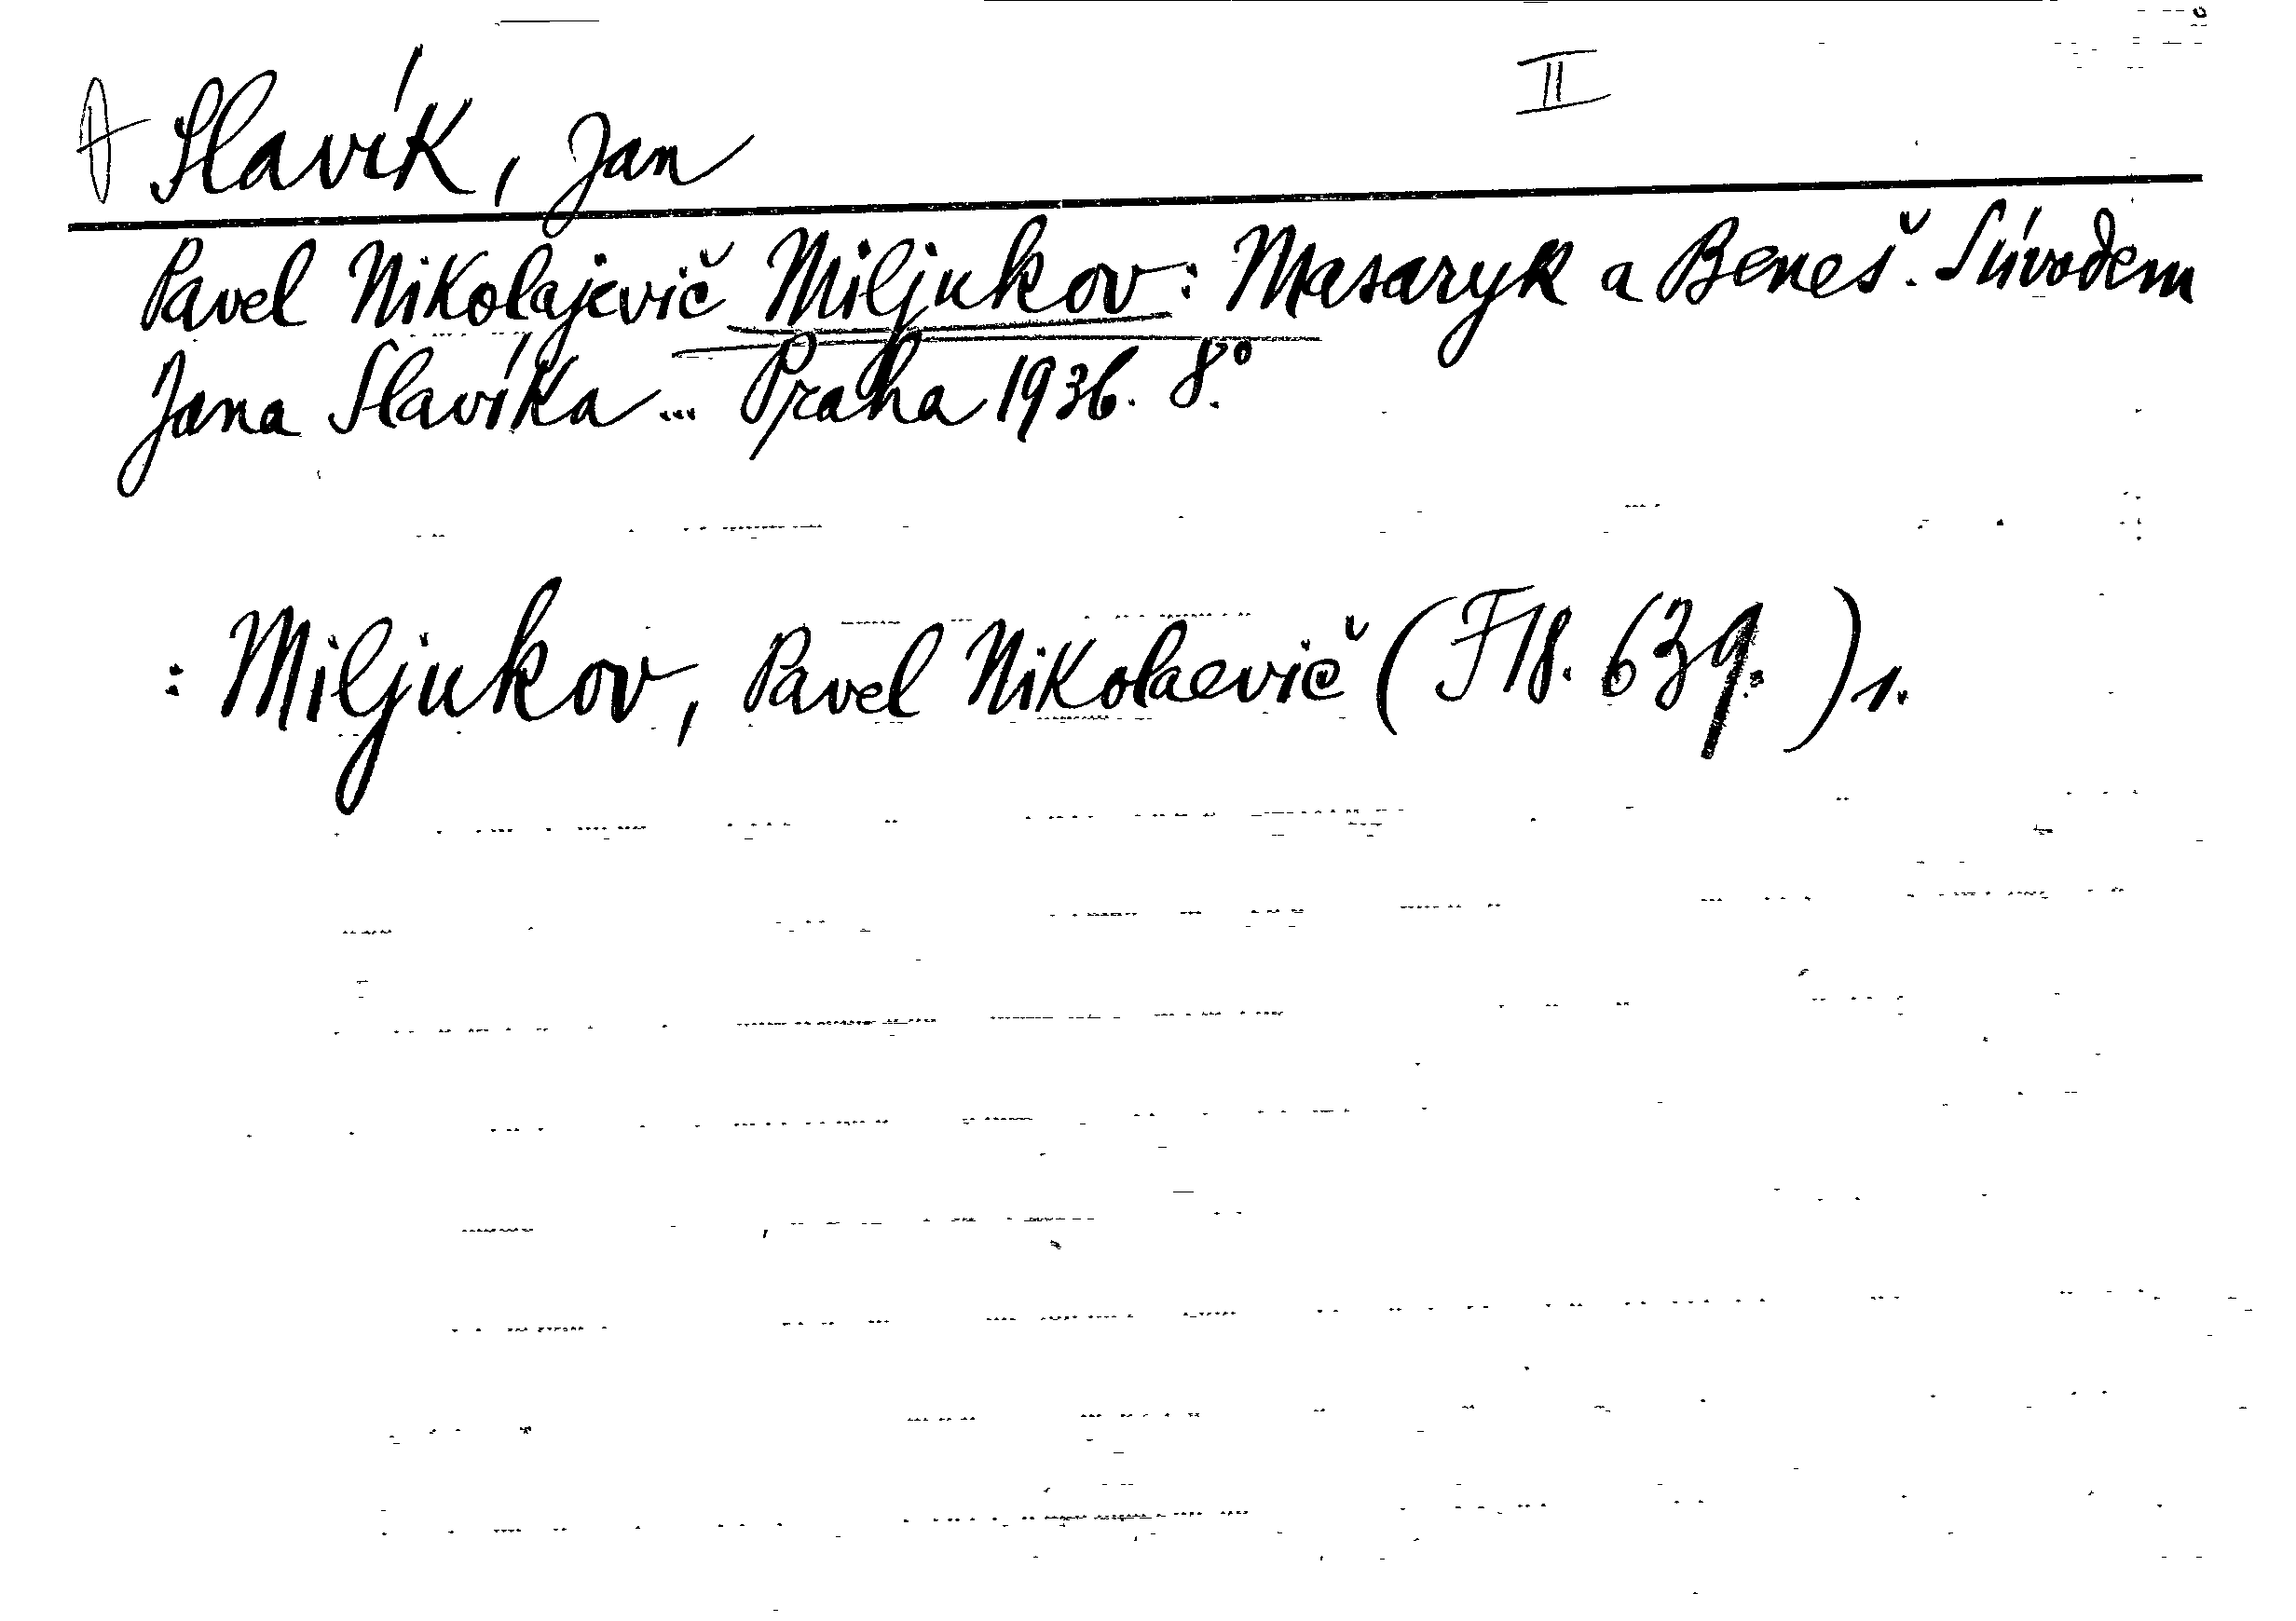 II
Slavík, Jan
Pavel Nikolajevič Miljukov: Masaryk a Beneš. S úvodem
Jana Slavíka... Praha 1936. 8º.
: Miljukov, Pavel Nikolaevič (F18. 639.) 1.